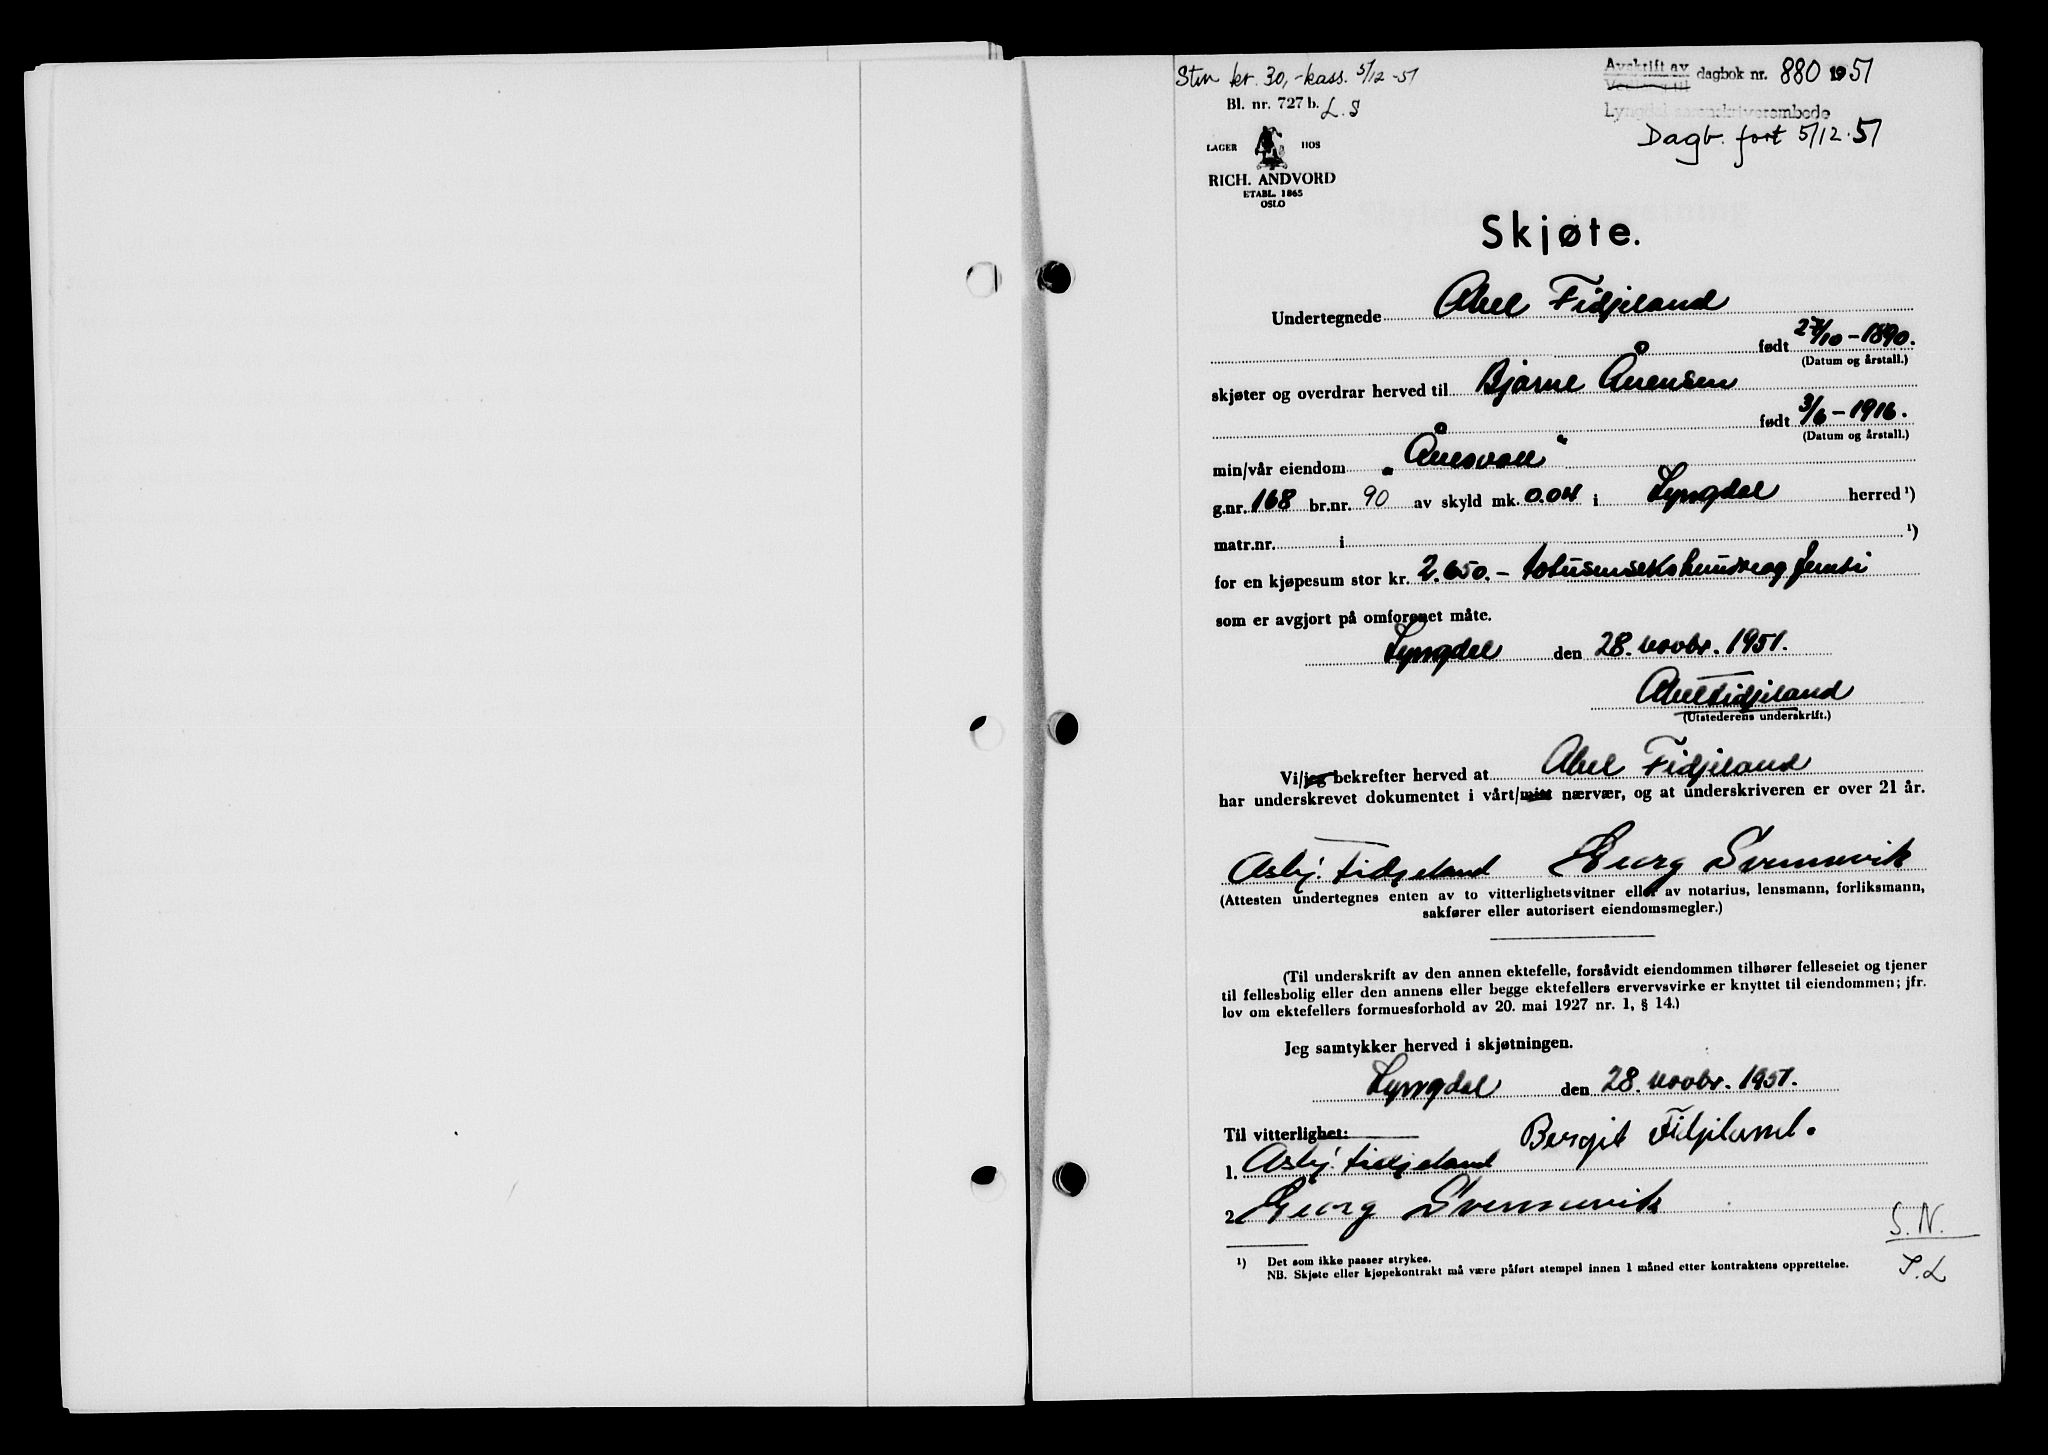 Stm kr. 30,- kass. 5/12-51
Avskrift av dagbok nr. 880 1951
Vedlegg til
Bl. nr. 727 b. L.S
Lyngdal sorenskriverembede
Dagb. ført 5/12.51
LAGER HOS
RICH. ANDVORD
ETABL. 1865
OSLO
Skjøte.
Undertegnede Abel Fidjeland
født 27/10-1890.
(Datum og årstall.)
skjøter og overdrar herved til Bjarne Ånensen
født 3/6-1916.
(Datum og årstall.)
min/vår eiendom "Ånesvoll"
g.nr. 168 br.nr. 90 av skyld mk. 0.04 i Lyngdal herred ¹)
matr.nr. i ¹)
for en kjøpesum stor kr. 2.650.- totusensekshundreogfemti
som er avgjort på omforenet måte.
Lyngdal den 28. novbr. 1951.
Abel Fidjeland
(Utstederens underskrift.)
Vi/jeg bekrefter herved at Abel Fidjeland
har underskrevet dokumentet i vårt/mitt nærvær, og at underskriveren er over 21 år.
Asbj. Fidjeland Georg Svennevik
(Attesten undertegnes enten av to vitterlighetsvitner eller av notarius, lensmann, forliksmann,
sakfører eller autorisert eiendomsmegler.)
(Til underskrift av den annen ektefelle, forsåvidt eiendommen tilhører felleseiet og tjener
til fellesbolig eller den annens eller begge ektefellers ervervsvirke er knyttet til eiendommen; jfr.
lov om ektefellers formuesforhold av 20. mai 1927 nr. 1, § 14.)
Jeg samtykker herved i skjøtningen.
Lyngdal den 28. novbr. 1951.
Til vitterlighet: Bergit Fidjeland.
1. Asbj. Fidjeland
2. Georg Svennevik
S.N.
T.L
¹) Det som ikke passer strykes.
NB. Skjøte eller kjøpekontrakt må være påført stempel innen 1 måned etter kontraktens opprettelse.